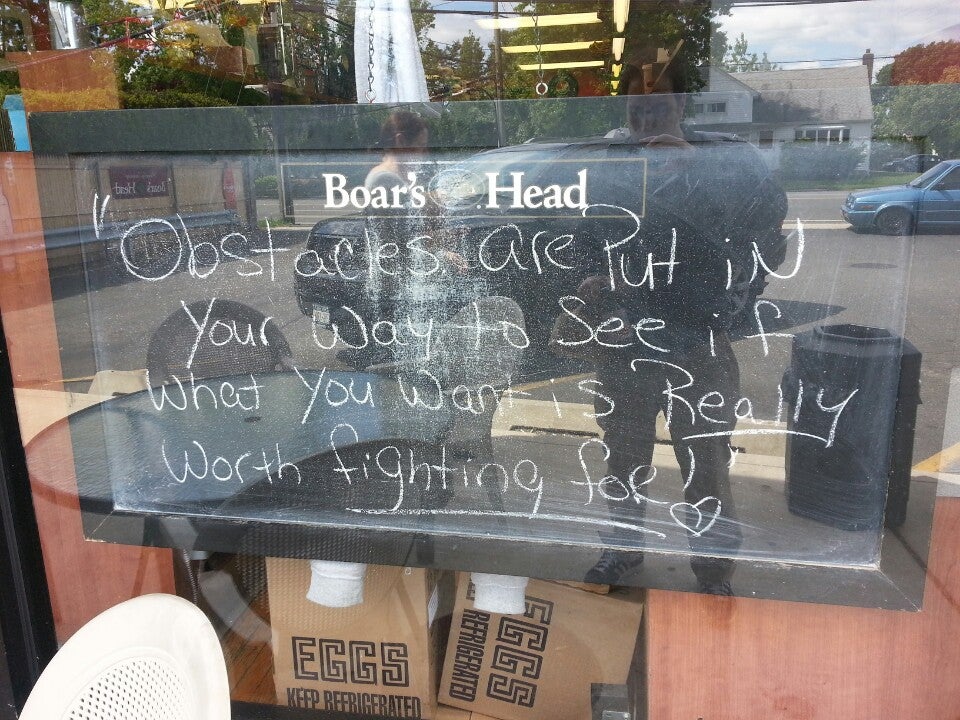 Boar's Head
"Obstacles are Put iN
Your Way to See if
What You Want is Really
Worth fighting for!"
Boar's Head
EGGS
KEEP REFRIGERATED
EGGS
REFRIGERATED